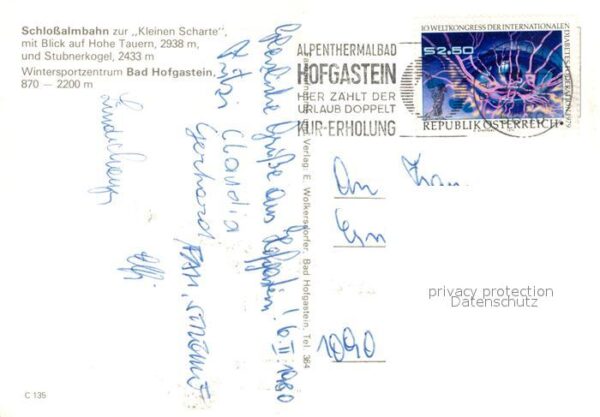 Schloßalmbahn zur „Kleinen Scharte",
mit Blick auf Hohe Tauern, 2938 m,
und Stubnerkogel, 2433 m
Wintersportzentrum Bad Hofgastein,
870 — 2200 m
ALPENTHERMALBAD
HOFGASTEIN
HIER ZÄHLT DER
URLAUB DOPPELT
KUR-ERHOLUNG
10.WELTKONGRESS DER INTERNATIONALEN
DIABETES-FÖDERATION 1979
S2.50
REPUBLIK ÖSTERREICH
Herzliche Grüße aus Hofgastein! 6.II.1980
Claudia
Gerhard
Verlag: E. Wolkersdorfer, Bad Hofgastein, Tel. 364
An
1090
privacy protection
Datenschutz
C 135